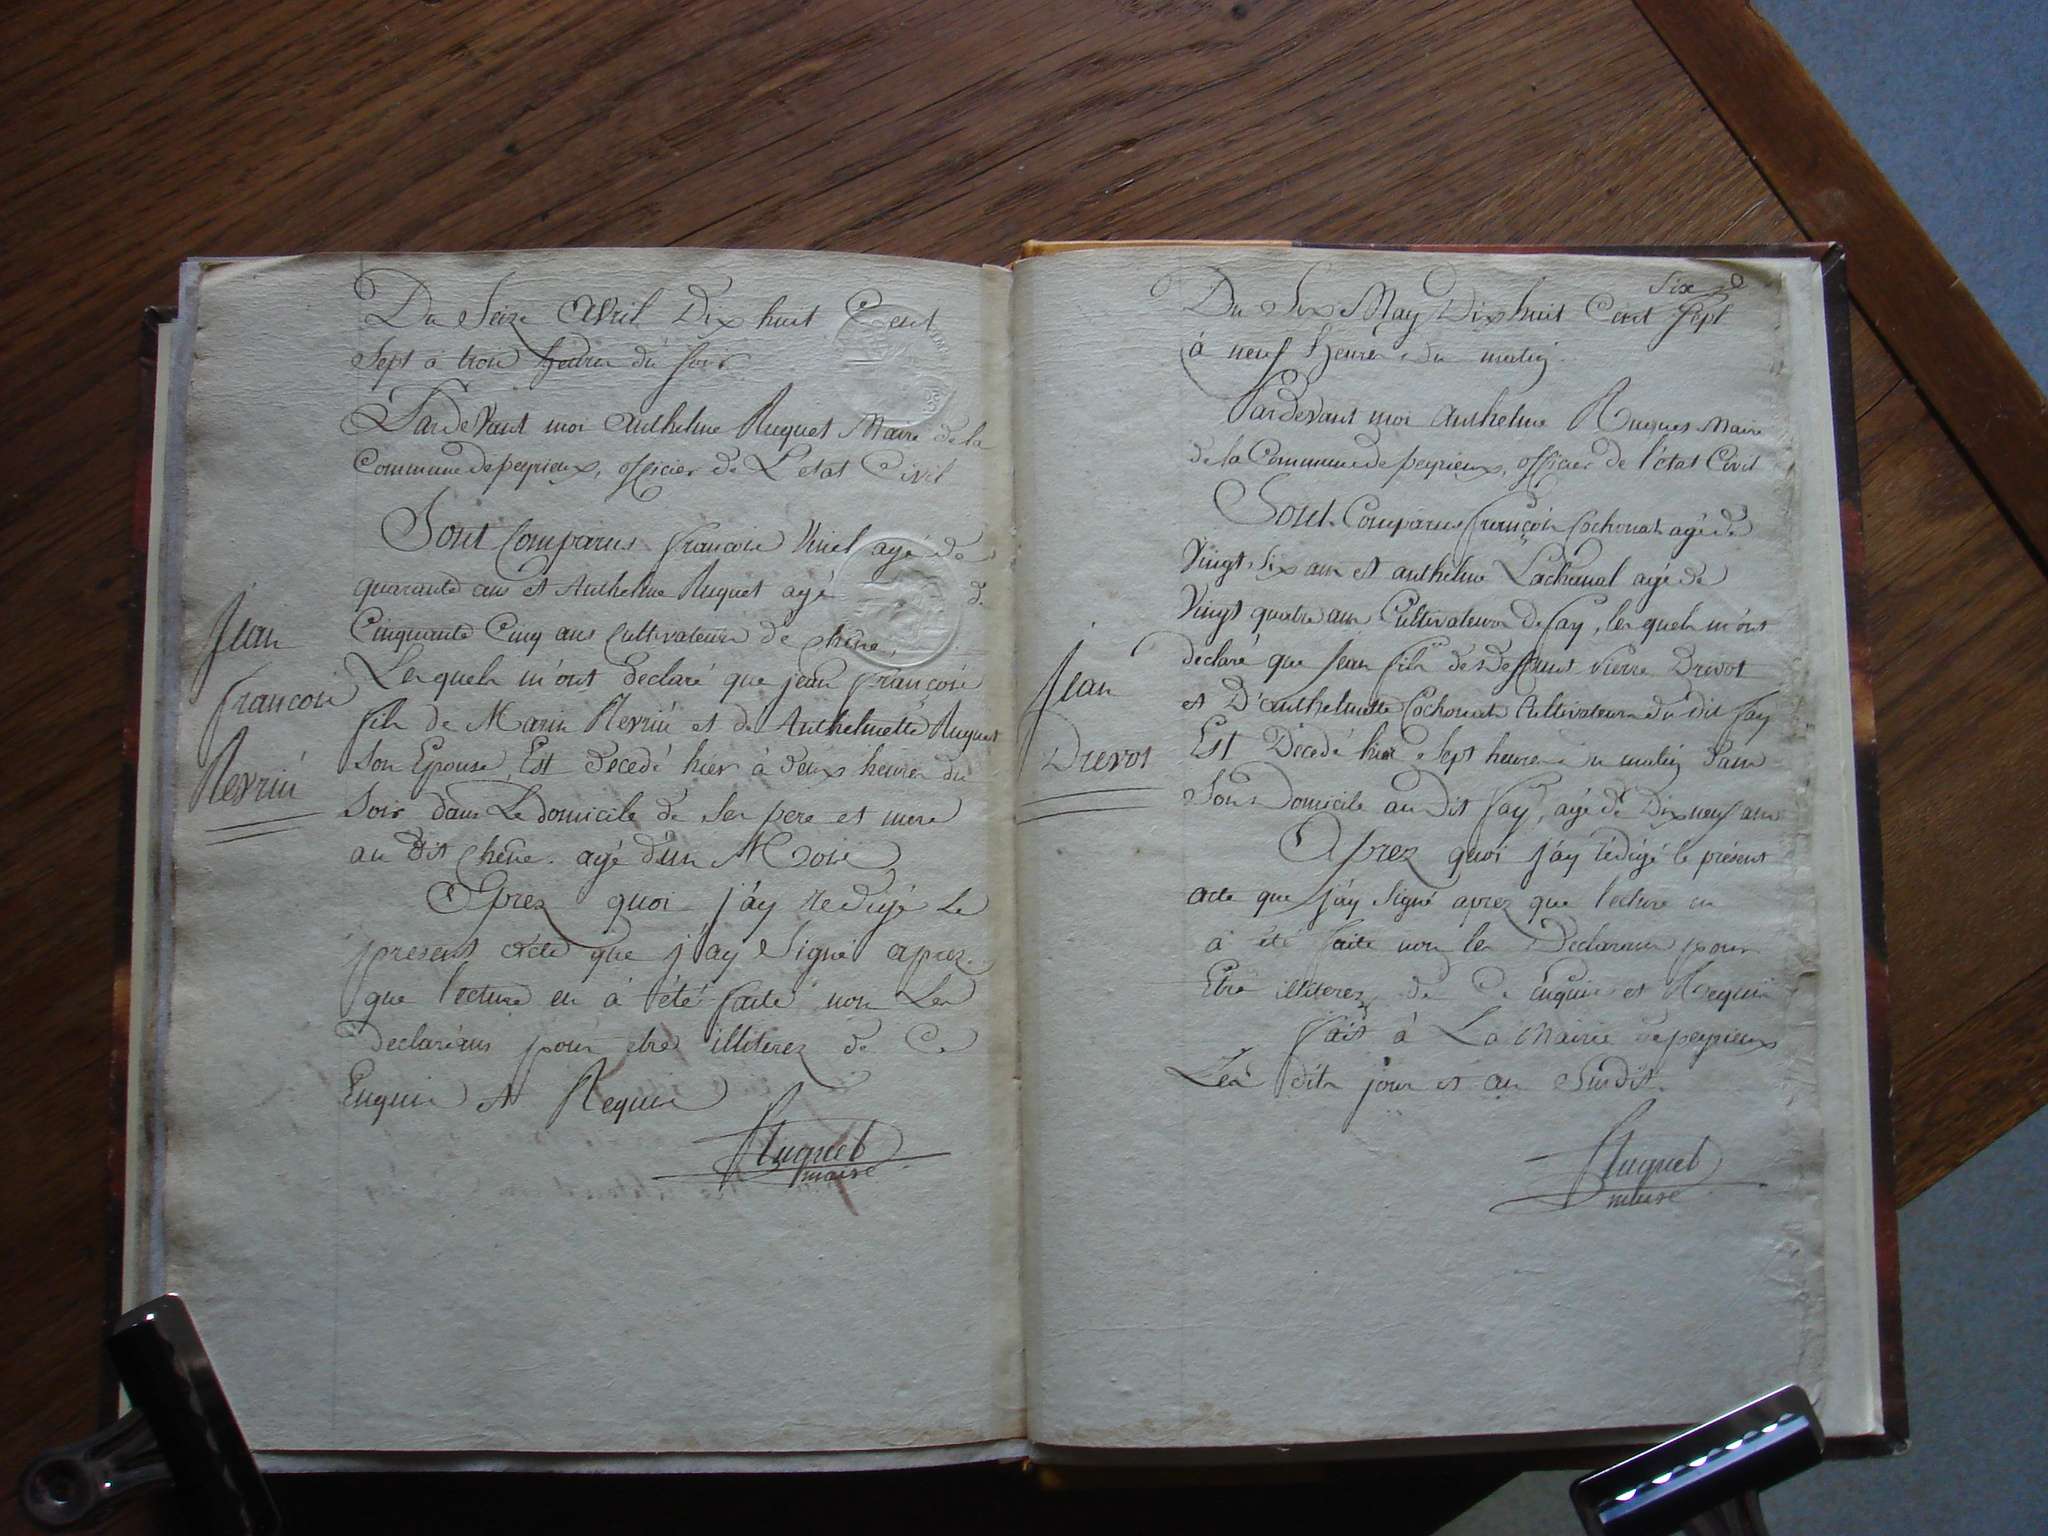 Du Seize Avril Dix huit Cent
Sept à trois heures du soir
Pardevant moi Anthelme Huguet Maire de la
Commune de peyrieux, officier de L'etat Civil
Sont Comparus francois Viuel agé de
quarante ans et Anthelme Huguet agé d.
Cinquante Cinq ans Cultivateurs de Chêne,
Lesquels m'ont declaré que jean françois
fils de Marin Revrin et de Anthelmette Huguet
Son Epouse, Est decedé hier à deux heures du
Soir dans Le domicile de Ses pere et mere
au dit Chêne. agé d'un Mois
Aprez quoi j'ay redigé Le
present acte que j'ay Signé aprez
que lecture en à été faite non Les
declarans pour etre illiterez de Ce
Enquis et Requis
Huguet
maire
Jean
francois
Revrin
Six
Du Six May Dix huit Cent Sept
à neuf heures du matin.
Pardevant moi Anthelme Huguet Maire
de la Commune de peyrieux, officier de l'état Civil
Sont Comparus françois Cochonat agé de
Vingt Six ans et anthelme Lachanal agé de
Vingt quatre ans Cultivateurs de fay, lesquels m'ont
declaré que Jean fils des defunt Pierre Drevot
et D'anthelmette Cochonat Cultivateurs du dit fay
Est Decedé hier a Sept heures du matin dans
Son Domicile au Dit fay, agé de Dix neuf ans
Aprez quoi j'ay redigé le présent
acte que j'ay Signé aprez que lecture en
à été faite non les Declarans pour
Etre illiterez de Ce Enquis et Requis
fait à La Mairie de peyrieux
Les dits jour et an Susdit.
Huguet
maire
Jean
Drevot